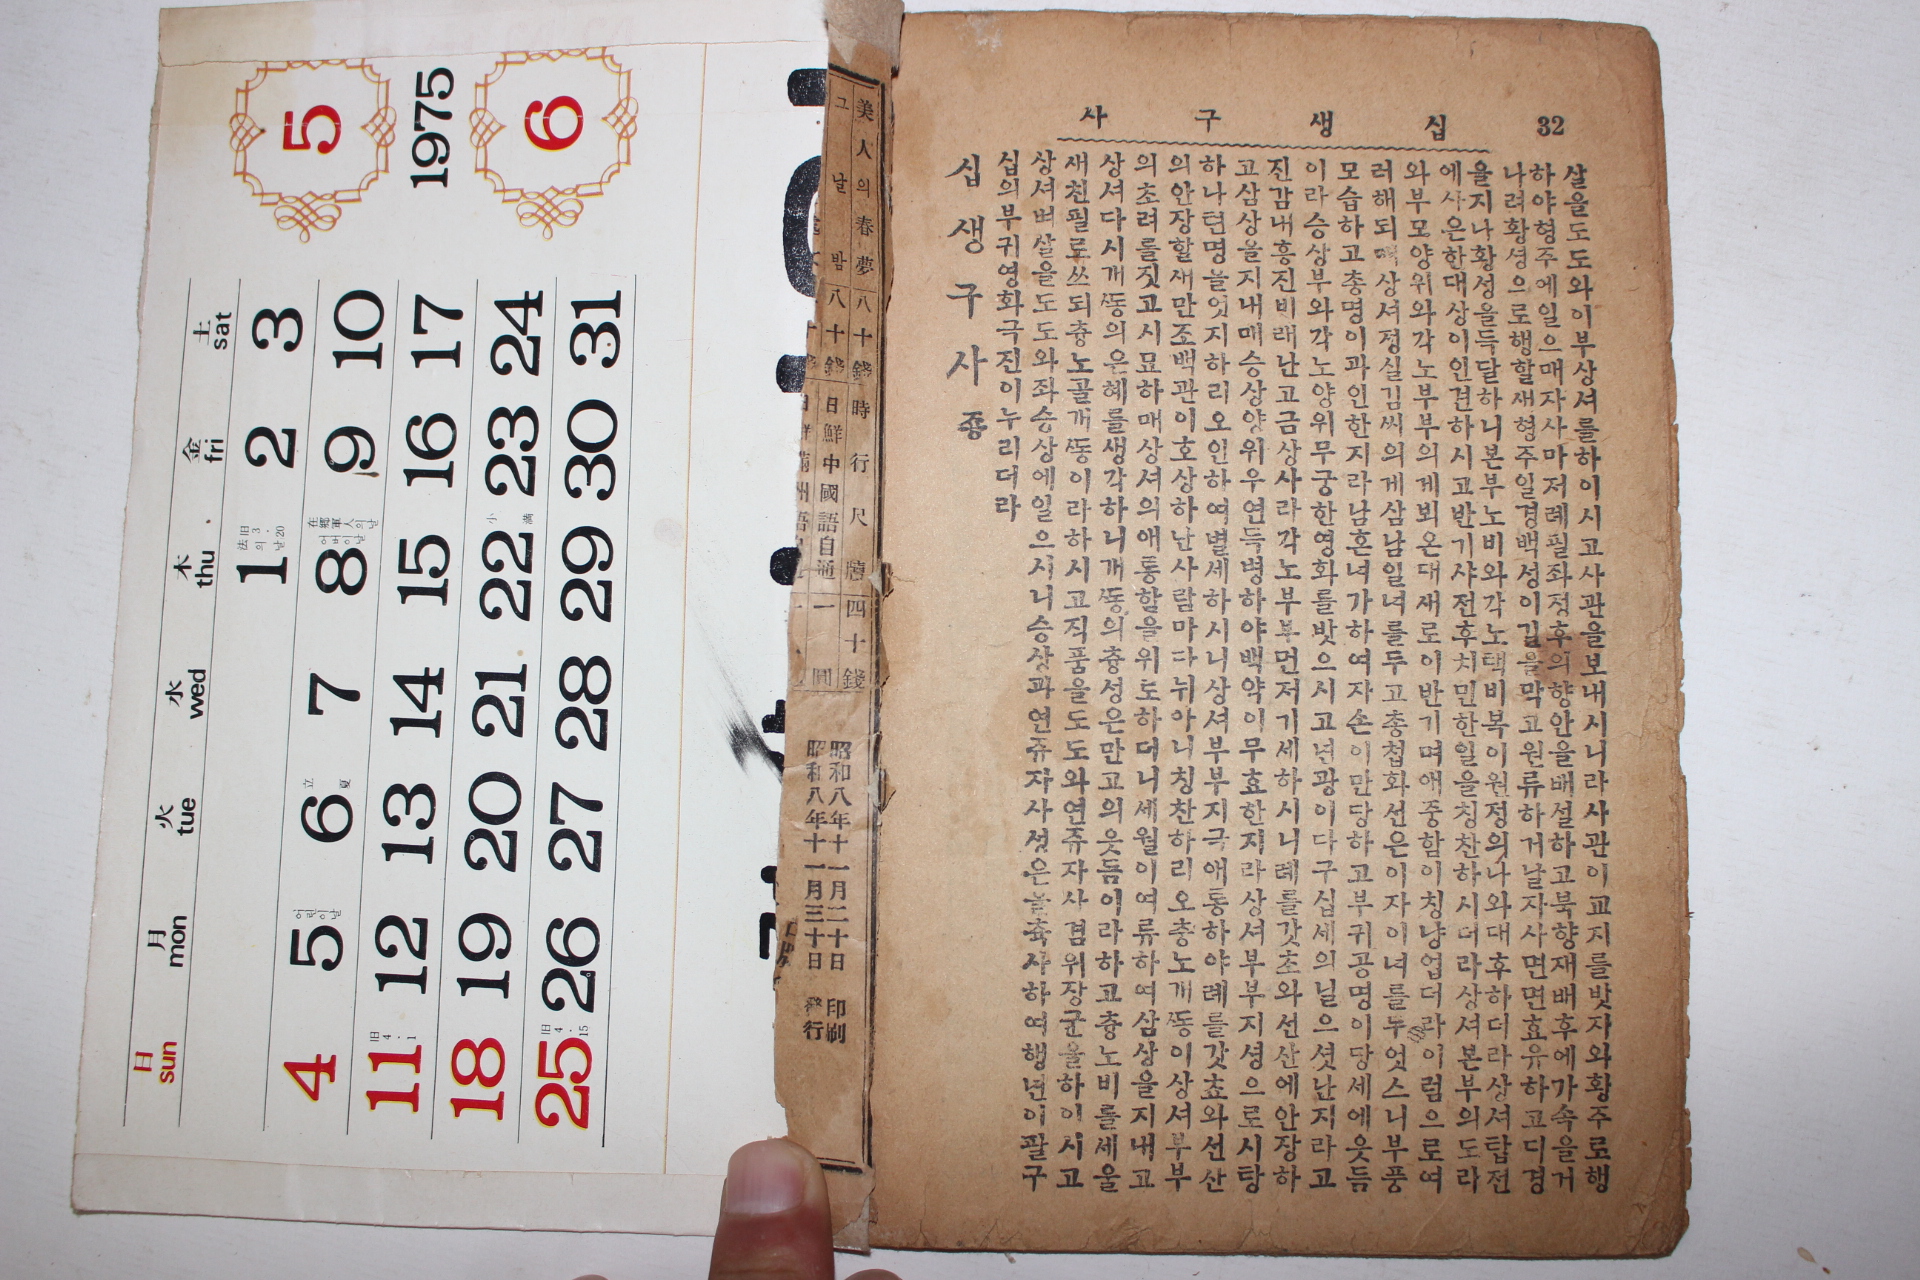 32
십생구사
살을도도와이부상셔를하이시고사관을보내시니라사관이교지를밧자와황주로행
하야형주에일으매자사마저례필좌정후의향안을배설하고북향재배후에가속을거
나려황셩으로행할새형주일경백성이길을막고원류하거날자사면면효유하고디경
을지나황성을득달하니본부노비와각노택비복이원정의나와대후하더라상셔탑전
에사은한대상이인견하시고반기샤전후치민한일을칭찬하시더라상셔본부의도라
와부모양위와각노부부의게뵈온대새로이반기며애중함이칭냥업더라이럼으로여
러해되매상셔정실김씨의게삼남일녀를두고총첩화션은이자이녀를두엇스니부풍
모습하고총명이과인한지라남혼녀가하여자손이만당하고부귀공명이당세에웃듬
이라승상부와각노양위무궁한영화를밧으시고년광이다구십세의닐으셧난지라고
진감내흥진비래난고금상사라각노부부먼저기세하시니례를갓초와선산에안장하
고삼상을지내매승상양위우연득병하야백약이무효한지라상셔부부지셩으로시탕
하나텬명늘엇지하리오인하여별세하시니상셔부부지극애통하야례를갓쵸와선산
의안장할새만조백관이호상하난사람마다뉘아니칭찬하리오충노개똥이상셔부부
의초려를짓고시묘하매상셔의애통할을위로하더니세월이여류하여삼상을지내고
상셔다시개똥의은혜를생각하니개똥의츙성은만고의웃듬이라하고츙노비를세울
새친필로쓰되츙노골개똥이라하시고직품을도도와연쥬자사겸위장군을하이시고
상셔벼살을도도와좌승상에일으시니승상과연쥬자사셧은늘츅사하여행년이팔구
십의부귀영화극진이누리더라
십생구사죵
美人의春夢 八十錢 時行尺牘 四十錢
그날밤 八十錢 日鮮中國語自通 一圓
昭和八年十一月二十日 印刷
昭和八年十一月三十日 發行
5 1975 6
日 月 火 水 木 金 土
sun mon tue wed thu fri sat
1 2 3
4 5 6 7 8 9 10
11 12 13 14 15 16 17
18 19 20 21 22 23 24
25 26 27 28 29 30 31